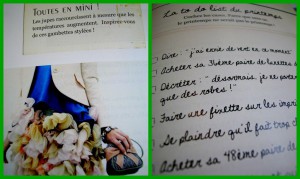 TOUTES EN MINI
Les jupes raccourcissent à mesure que les
températures augmentent. Inspirez-vous
de ces gambettes stylées !
La to do list du printemps
Dire : "j'ai envie de
Acheter sa 36ème paire de
Décréter : "désormais, je ne porte
que des robes !"
Faire une fixette sur les
Se plaindre qu'il fait trop
Acheter sa 48ème paire de